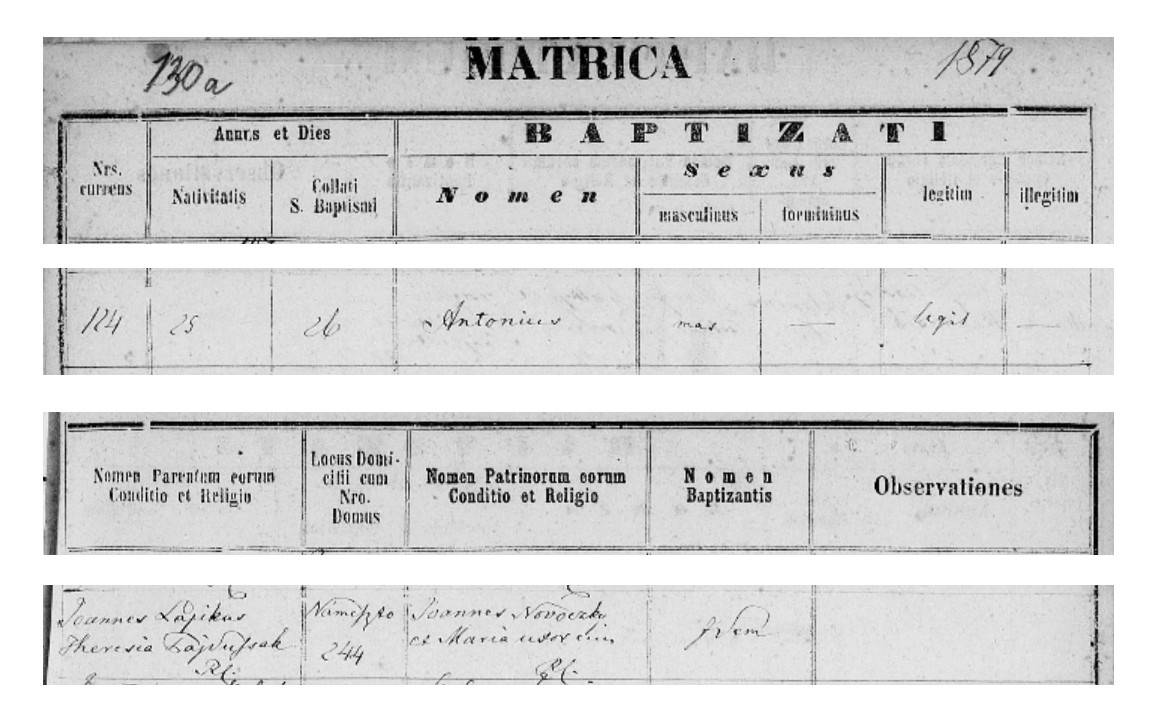 MATRICA
130a
1879
Nrs. currens
Annus et Dies
Nativitatis
Collati S. Baptismi
BAPTIZATI
Nomen
Sexus
masculinus
foemininus
legitim
illegitim
124 25 26 Antonius mas — legit —
Nomen Parentum eorum
Conditio et Religio
Locus Domi-
cilii cum
Nro.
Domus
Nomen Patrinorum eorum
Conditio et Religio
Nomen
Baptizantis
Observationes
Joannes
Theresia
R.C.
244
Joannes
et Maria uxor
R.C.